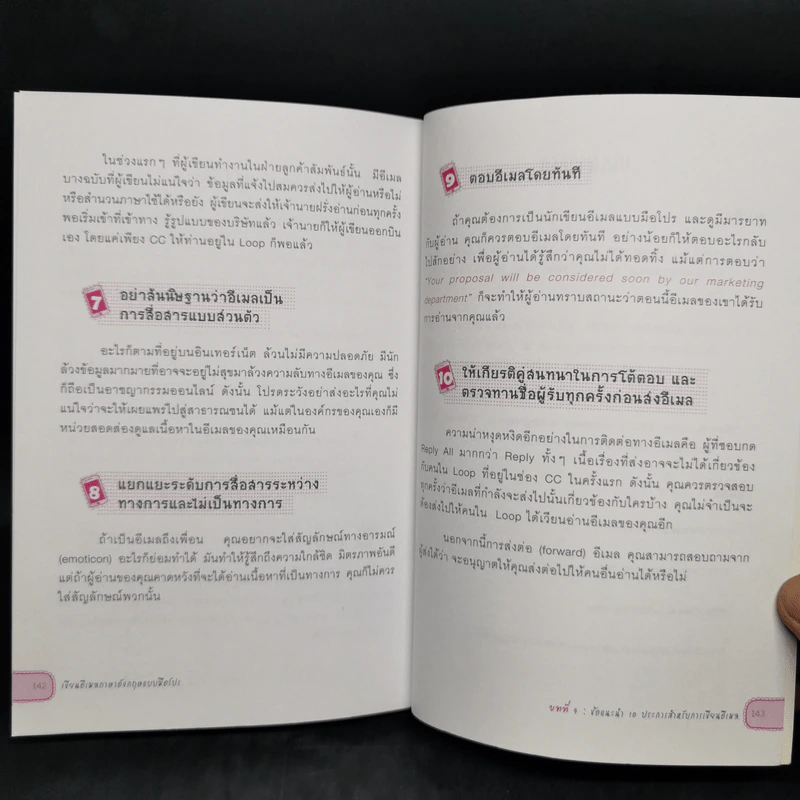 ในช่วงแรกๆ ที่ผู้เขียนทำงานในฝ่ายลูกค้าสัมพันธ์นั้น มีอีเมล
บางฉบับที่ผู้เขียนไม่แน่ใจว่า ข้อมูลที่แจ้งไปสมควรส่งไปให้ผู้อ่านหรือไม่
หรือสำนวนภาษาใช้ได้หรือยัง ผู้เขียนจะส่งให้เจ้านายฝรั่งอ่านก่อนทุกครั้ง
พอเริ่มเข้าที่เข้าทาง รู้รูปแบบของบริษัทแล้ว เจ้านายก็ให้ผู้เขียนออกบิน
เอง โดยแค่เพียง CC ให้ท่านอยู่ใน Loop ก็พอแล้ว
7 อย่าสันนิษฐานว่าอีเมลเป็น
การสื่อสารแบบส่วนตัว
อะไรก็ตามที่อยู่บนอินเทอร์เน็ต ล้วนไม่มีความปลอดภัย มีนัก
ล้วงข้อมูลมากมายที่อาจจะอยู่ไม่สุขมาล้วงความลับทางอีเมลของคุณ ซึ่ง
ก็ถือเป็นอาชญากรรมออนไลน์ ดังนั้น โปรดระวังอย่าส่งอะไรที่คุณไม่
แน่ใจว่าจะให้เผยแพร่ไปสู่สาธารณชนได้ แม้แต่ในองค์กรของคุณเองก็มี
หน่วยสอดส่องดูแลเนื้อหาในอีเมลของคุณเหมือนกัน
8 แยกแยะระดับการสื่อสารระหว่าง
ทางการและไม่เป็นทางการ
ถ้าเป็นอีเมลถึงเพื่อน คุณอยากจะใส่สัญลักษณ์ทางอารมณ์
(emoticon) อะไรก็ย่อมทำได้ มันทำให้รู้สึกถึงความใกล้ชิด มิตรภาพอันดี
แต่ถ้าผู้อ่านของคุณคาดหวังที่จะได้อ่านเนื้อหาที่เป็นทางการ คุณก็ไม่ควร
ใส่สัญลักษณ์พวกนั้น
142 เขียนอีเมลภาษาอังกฤษแบบมือโปร
9 ตอบอีเมลโดยทันที
ถ้าคุณต้องการเป็นนักเขียนอีเมลแบบมือโปร และดูมีมารยาท
กับผู้อ่าน คุณก็ควรตอบอีเมลโดยทันที อย่างน้อยก็ให้ตอบอะไรกลับ
ไปสักอย่าง เพื่อผู้อ่านได้รู้สึกว่าคุณไม่ได้ทอดทิ้ง แม้แต่การตอบว่า
"Your proposal will be considered soon by our marketing
department" ก็จะทำให้ผู้อ่านทราบสถานะว่าตอนนี้อีเมลของเขาได้รับ
การอ่านจากคุณแล้ว
10 ให้เกียรติคู่สนทนาในการโต้ตอบ และ
ตรวจทานชื่อผู้รับทุกครั้งก่อนส่งอีเมล
ความน่าหงุดหงิดอีกอย่างในการติดต่อทางอีเมลคือ ผู้ที่ชอบกด
Reply All มากกว่า Reply ทั้งๆ เนื้อเรื่องที่ส่งอาจจะไม่ได้เกี่ยวข้อง
กับคนใน Loop ที่อยู่ในช่อง CC ในครั้งแรก ดังนั้น คุณควรตรวจสอบ
ทุกครั้งว่าอีเมลที่กำลังจะส่งไปนั้นเกี่ยวข้องกับใครบ้าง คุณไม่จำเป็นจะ
ต้องส่งไปให้คนใน Loop ได้เวียนอ่านอีเมลของคุณอีก
นอกจากนี้การส่งต่อ (forward) อีเมล คุณสามารถสอบถามจาก
ผู้ส่งได้ว่า จะอนุญาตให้คุณส่งต่อไปให้คนอื่นอ่านได้หรือไม่
บทที่ 9 : ข้อแนะนำ 10 ประการสำหรับการเขียนอีเมล 143